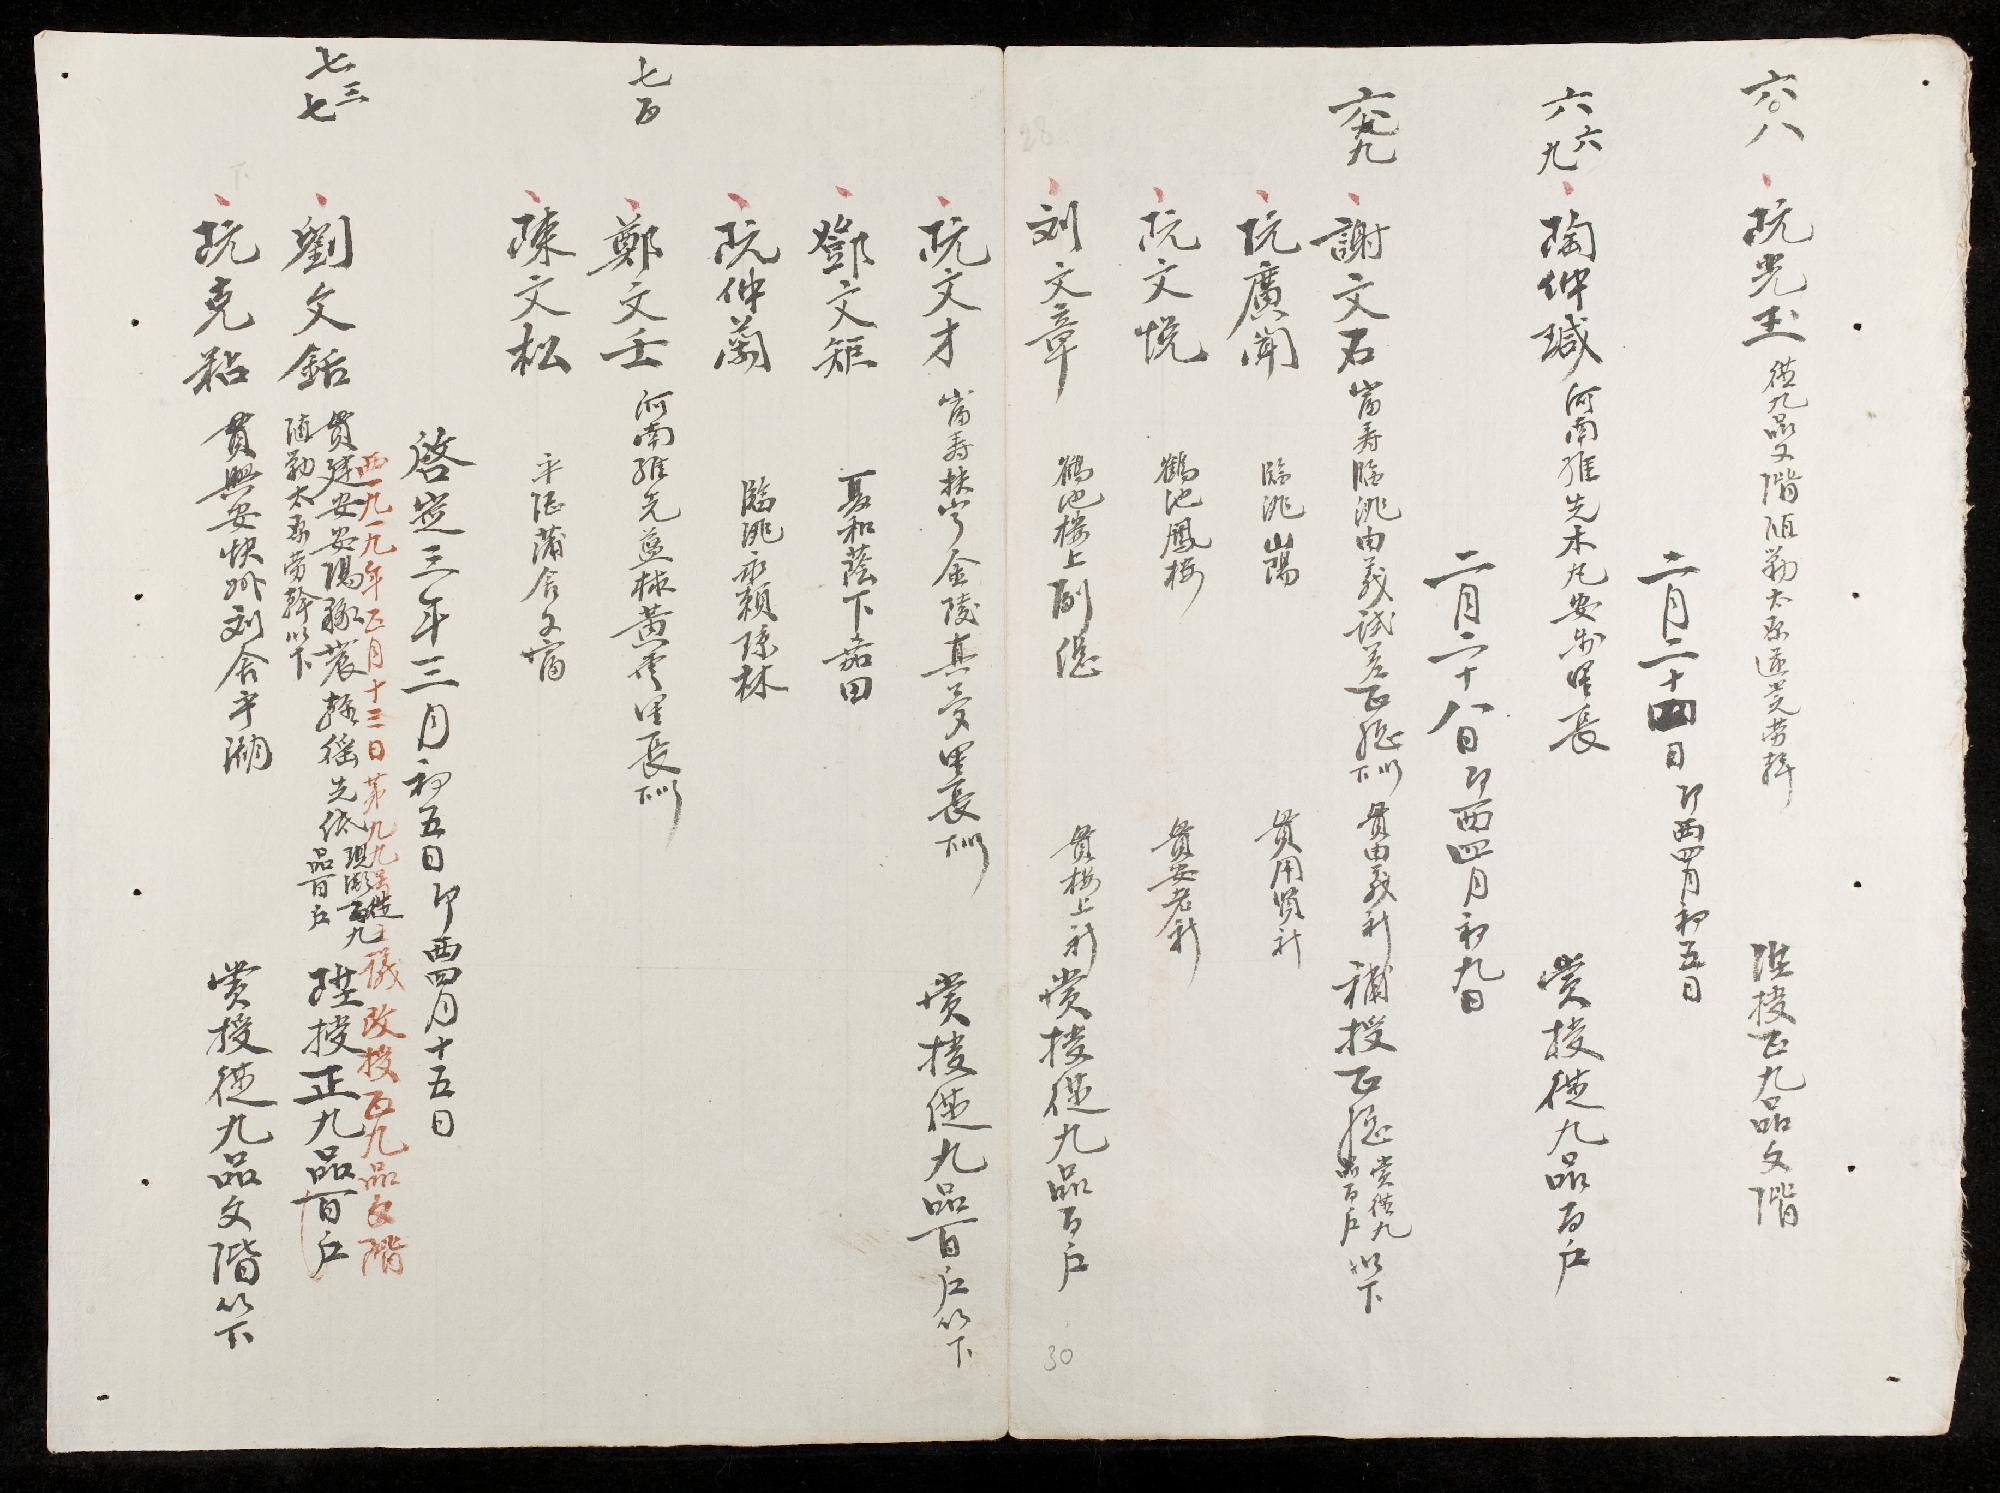 六〇八
阮光玉 從九品文階隨勦太原逆党劳
陞授正九品文階
二月二十四日 即西四月初五日
六六九
陶仲瑊 河南維先木丸安 里長
赏授從九品百户
二月二十八日 即西四月初九日
六九九
謝文石 富寿臨洮由義試差正総 貫由義社 補授正総 赏從九品百户 以下
阮廣聞 臨洮山陽 貫用賢社
阮文悦 鶴池鳳楼 貫安老社
刘文章 鶴池楼上副總 貫楼上社 赏授從九品百户
阮文才 富寿扶寧金陵真夢里長
赏授從九品百户以下
鄧文矩 夏和蔭下茹田
阮仲蘭 臨洮永賴陈林
七百
鄭文壬 河南維先藍球黃雲里長
陳文松 平陸蒲舍文甯
啓定三年三月初五日 即西四月十五日
西一九一九年正月十三日第九九号從 議改授正九品文階
七三七
劉文銛 貫建安安陽豫 先依 現 從九品百户
隨勦太原劳幹以下
陞授正九品百户
阮克粘 貫興安快州刘舍平湖
赏授從九品文階以下
28
30